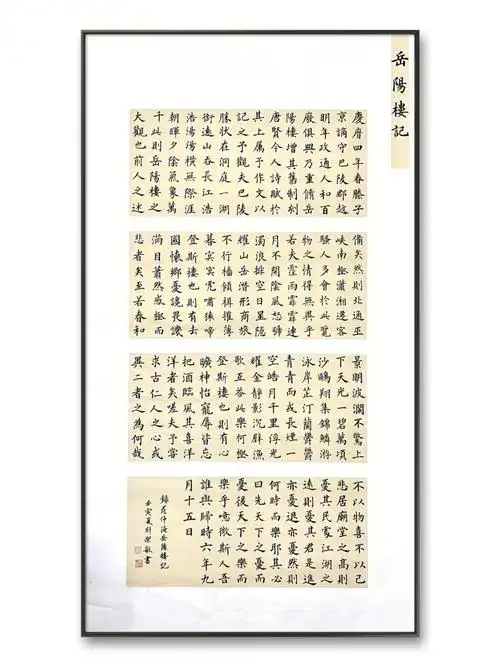 岳陽樓記
慶曆四年春滕子
京謫守巴陵郡越
明年政通人和百
廢俱興乃重脩岳
陽樓增其舊制刻
唐賢今人詩賦於
其上屬予作文以
記之予觀夫巴陵
勝狀在洞庭一湖
銜遠山吞長江浩
浩湯湯橫無際涯
朝暉夕陰氣象萬
千此則岳陽樓之
大觀也前人之述
備矣然則北通巫
峽南極瀟湘遷客
騷人多會於此覽
物之情得無異乎
若夫霪雨霏霏連
月不開陰風怒號
濁浪排空日星隱
耀山岳潛形商旅
不行檣傾楫摧薄
暮冥冥虎嘯猿啼
登斯樓也則有去
國懷鄉憂讒畏譏
滿目蕭然感極而
悲者矣至若春和
景明波瀾不驚上
下天光一碧萬頃
沙鷗翔集錦鱗游
泳岸芷汀蘭鬱鬱
青青而或長煙一
空皓月千里浮光
耀金靜影沉璧漁
歌互答此樂何極
登斯樓也則有心
曠神怡寵辱皆忘
把酒臨風其喜洋
洋者矣嗟夫予嘗
求古仁人之心或
異二者之為何哉
不以物喜不以己
悲居廟堂之高則
憂其民處江湖之
遠則憂其君是進
亦憂退亦憂然則
何時而樂耶其必
曰先天下之憂而
憂後天下之樂而
樂乎噫微斯人吾
誰與歸時六年九
月十五日
錄范仲淹岳陽樓記
壬寅夏敏書